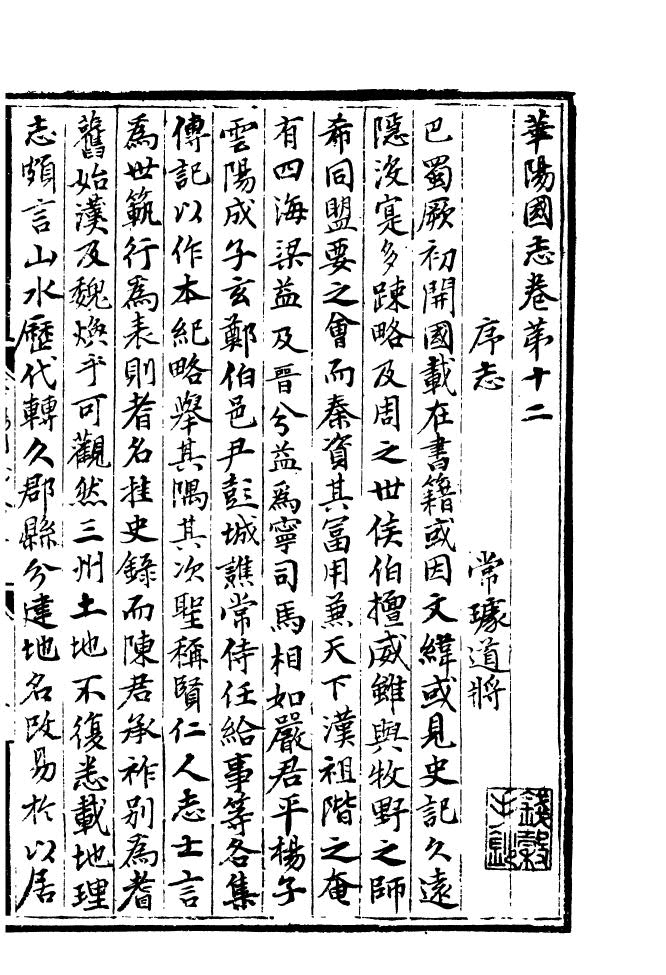 華陽國志卷第十二
序志
常璩道將
巴蜀厥初開國載在書籍或因文緯或見史記久遠
隱沒寔多踈略及周之世侯伯擅威雖與牧野之師
希同盟要之會而秦資其冨用兼天下漢祖階之奄
有四海梁益及晉兮益爲寧司馬相如嚴君平楊子
雲陽成子玄鄭伯邑尹彭城譙常侍任給事等各集
傳記以作本紀略舉其隅其次聖稱賢仁人志士言
為世範行為表則者名挂史錄而陳君承祚别為耆
舊始漢及魏煥乎可觀然三州土地不復悉載地理
志頗言山水歷代轉久郡縣分建地名改易於以居
錢穀